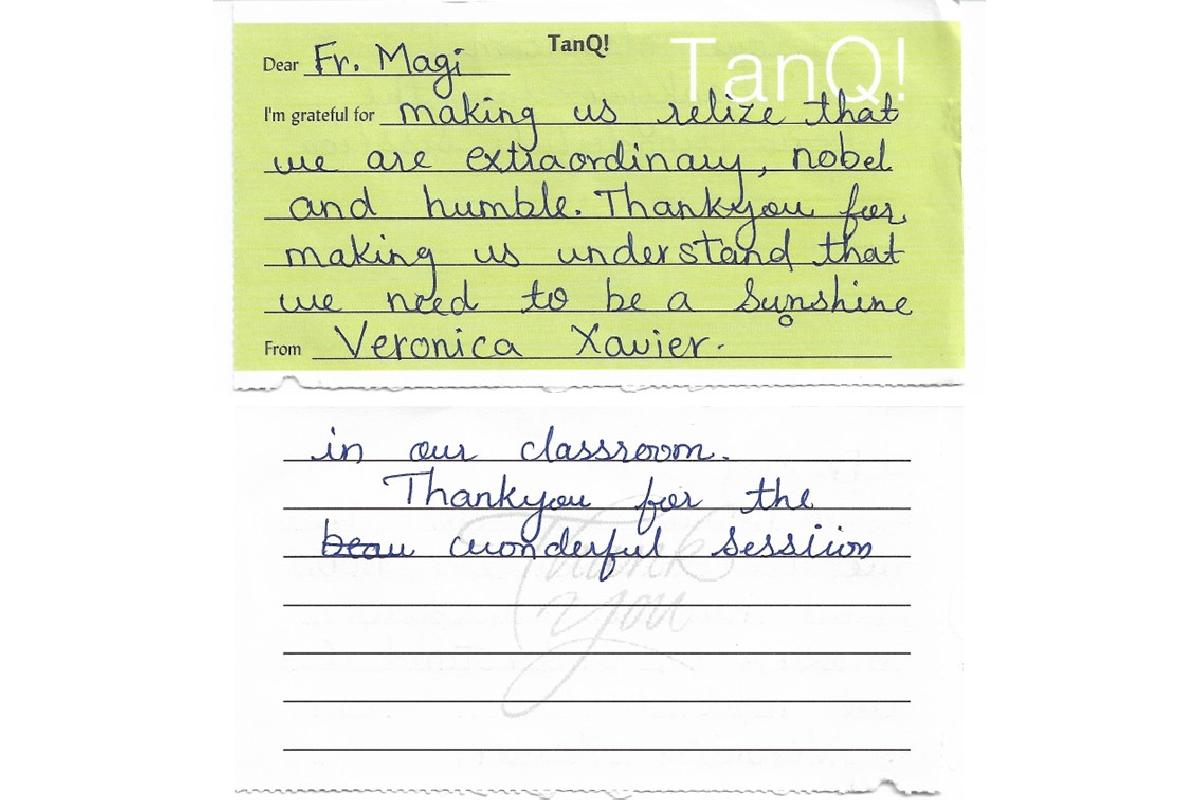 TanQ!
TanQ!
Dear Fr. Magi
I'm grateful for making us relize that
we are extraordinary, nobel
and humble. Thankyou for
making us understand that
we need to be a Sunshine
From Veronica Xavier.
in our classroom.
Thankyou for the
beau wonderful session
Thank
you